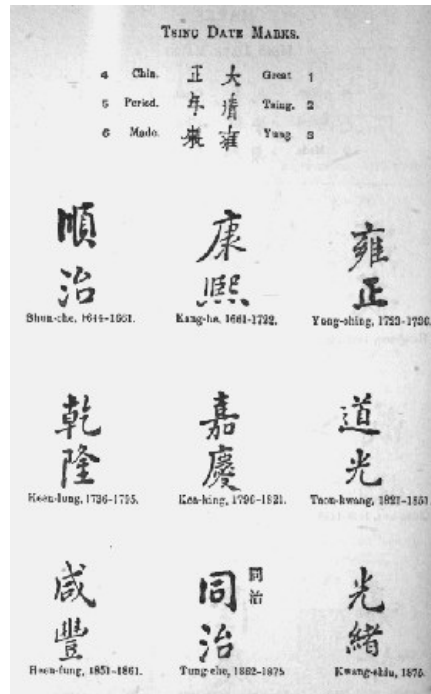 TSING DATE MARKS.
4 Chin. 正 大 Great 1
5 Period. 年 清 Tsing. 2
6 Made. 製 雍 Yung 3
順治
Shun-che, 1644-1661.
康熙
Kang-he, 1661-1722.
雍正
Yung-ching, 1723-1736.
乾隆
Keen-lung, 1736-1795.
嘉慶
Kea-king, 1796-1821.
道光
Taou-kwang, 1821-1851
咸豐
Heen-fung, 1851-1861.
同治
同治
Tung-che, 1862-1875
光緒
Kwang-shiu, 1875.